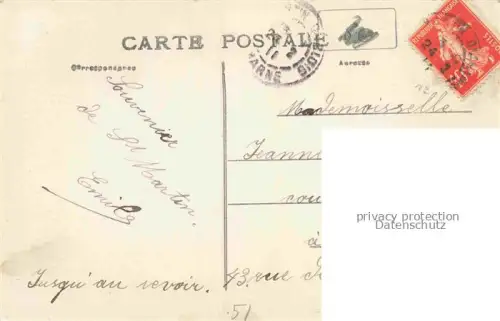 CARTE POSTALE
Correspondance
Adresse
Souvenier
de St Martin.
Emile
Jusqu'au revoir.
Mademoiselle
Jeann
cou
à
43 rue
51
privacy protection
Datenschutz